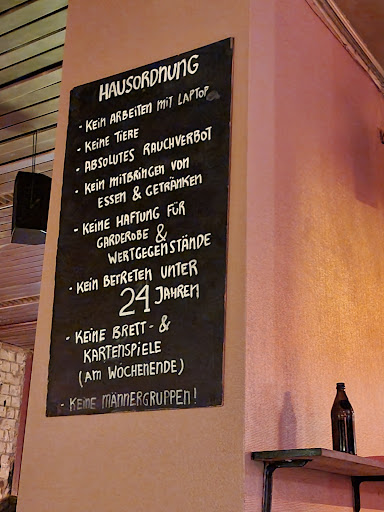 HAUSORDNUNG
- KEIN ARBEITEN MIT LAPTOP
- KEINE TIERE
- ABSOLUTES RAUCHVERBOT
- KEIN MITBRINGEN VON
ESSEN & GETRÄNKEN
- KEINE HAFTUNG FÜR
GARDEROBE &
WERTGEGENSTÄNDE
- KEIN BETRETEN UNTER
24 JAHREN
- KEINE BRETT- &
KARTENSPIELE
(AM WOCHENENDE)
- KEINE MÄNNERGRUPPEN!